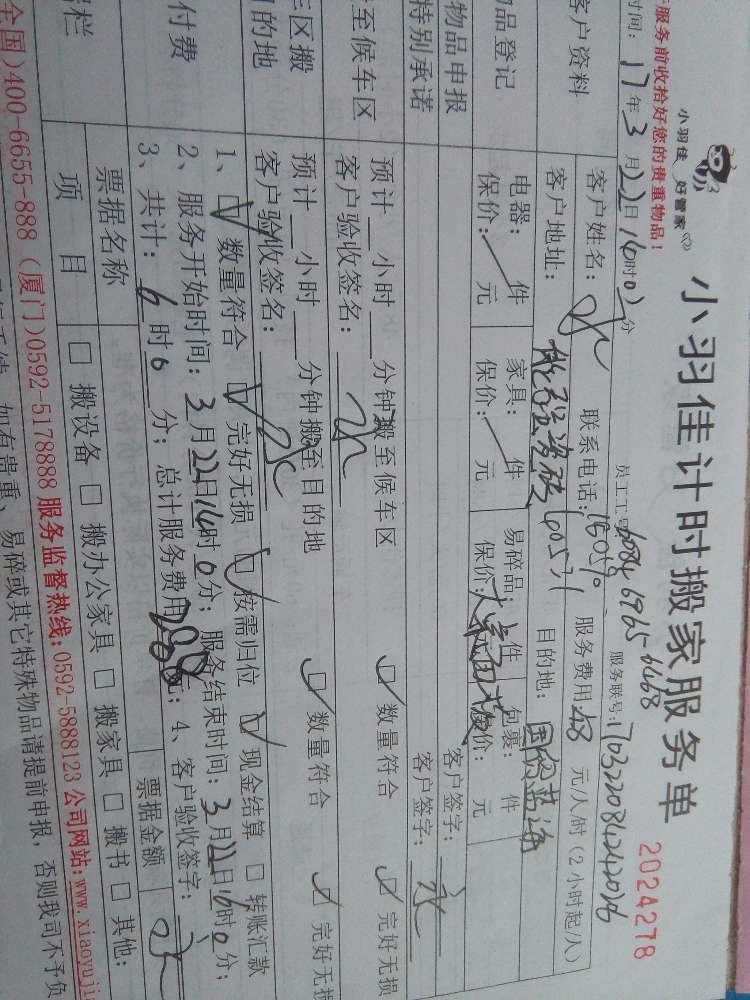 小羽佳 好管家
小羽佳计时搬家服务单
2024278
服务前收拾好您的贵重物品!
员工工号:6084 6965 6468 服务联号:170322084242026
时间: 17年3月22日16时0分
客户资料
客户姓名: 联系电话: 服务费用48元/人/时(2小时起/人)
客户地址: 目的地:
物品登记
电器: 件 家具: 件 易碎品: 件 包裹: 件
保价: 元 保价: 元 保价: 价: 元
物品申报 客户签字:
特别承诺 客户签字:
至候车区
预计 小时 分钟搬至候车区 数量符合 完好无损
客户验收签名:
区搬
目的地
预计 小时 分钟搬至目的地 数量符合 完好无损
客户验收签名:
付费
1、 数量符合 完好无损 按需归位 现金结算 □ 转账汇款
2、服务开始时间: 3月22日14时0分; 服务结束时间: 3月22日16时0分;
3、共计: 6时0分; 总计服务费用288元; 4、客户验收签字:
栏
票据名称 票据金额
项目 □ 搬设备 □ 搬办公家具 □ 搬家具 □ 搬书 □ 其他:
全国)400-6655-888 (厦门)0592-5178888 服务监督热线:0592-5888123 公司网站:www.xiaoyuji
如有贵重、易碎或其它特殊物品请提前申报,否则我司不予负